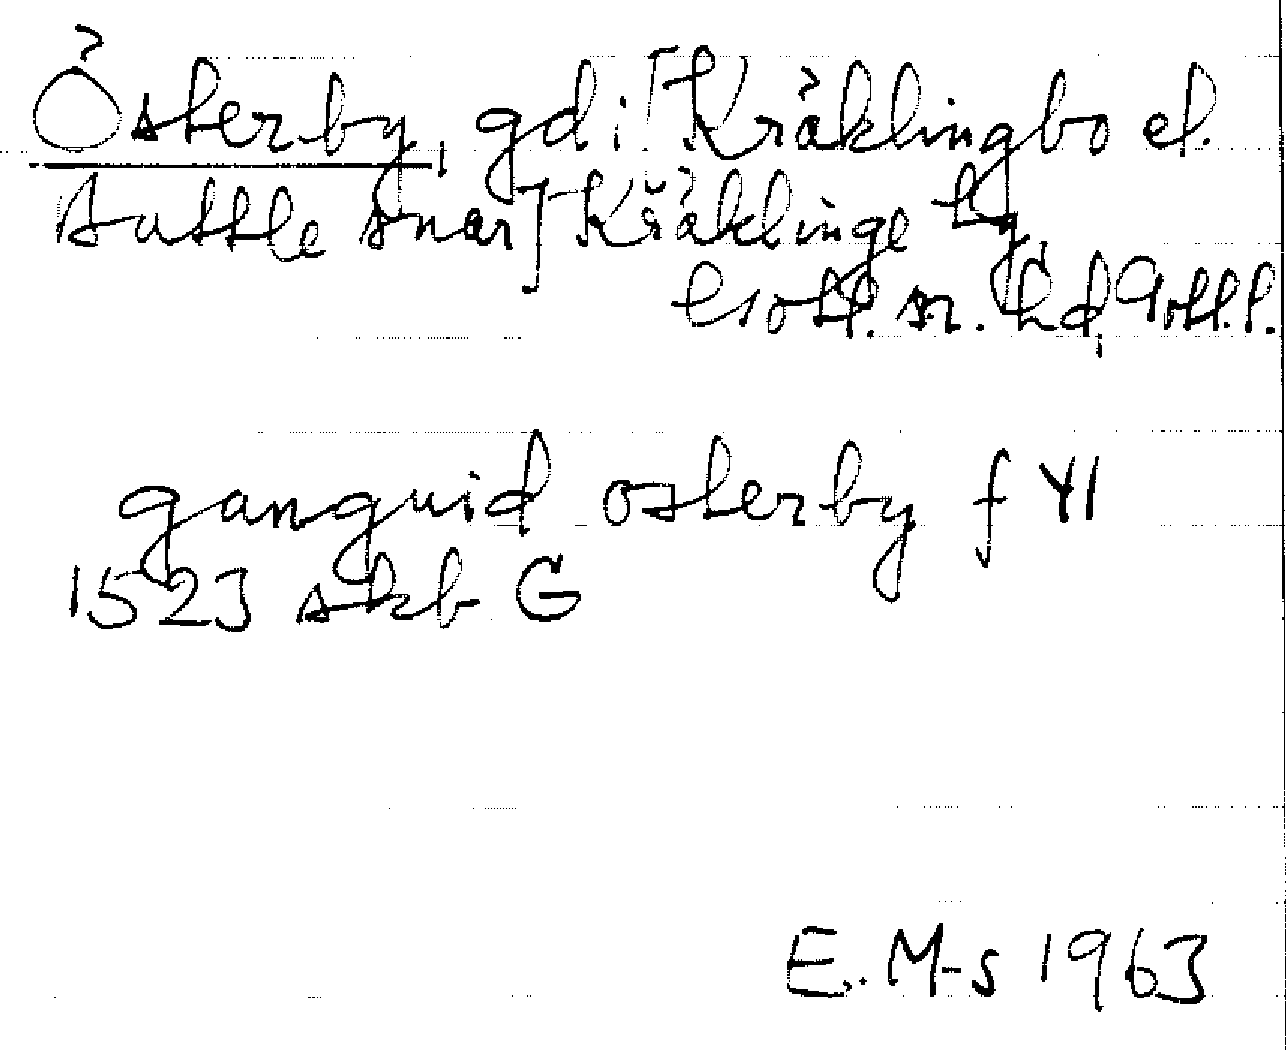 Österby, gd i [Kräklingbo el.
Suttle snar] Kräklinge tg,
Gotl. sr. hd, Gotl. l.
ganguid osterby f YI
1523 skb G
E. M-s 1963